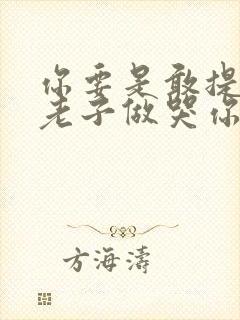 你要是敢提
老子做哭你
方海涛